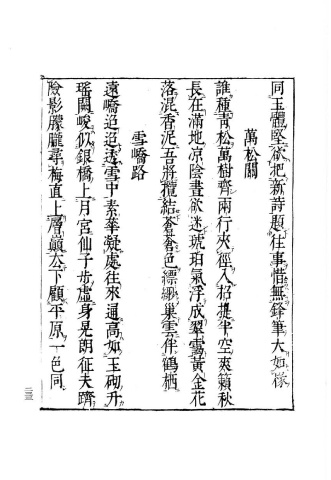 同玉體堅欲把新詩題往事惜無鋒筆大如椽
萬松關
誰種青松萬樹齊兩行夾徑入招提半空爽籟秋
長在滿地凉陰晝欲迷琥珀氣浮成翠靄黃金花
落混香泥吾將攬結蒼蒼色縹緲巢雲伴鶴栖
雪嶠路
遠嶠迢迢透雪中素華凝處往來通高如玉砌升
瑤闕峻似銀橋上月宮仙子步虛身晃朗征夫躋
險影朦朧尋梅直上層巔去下顧平原一色同